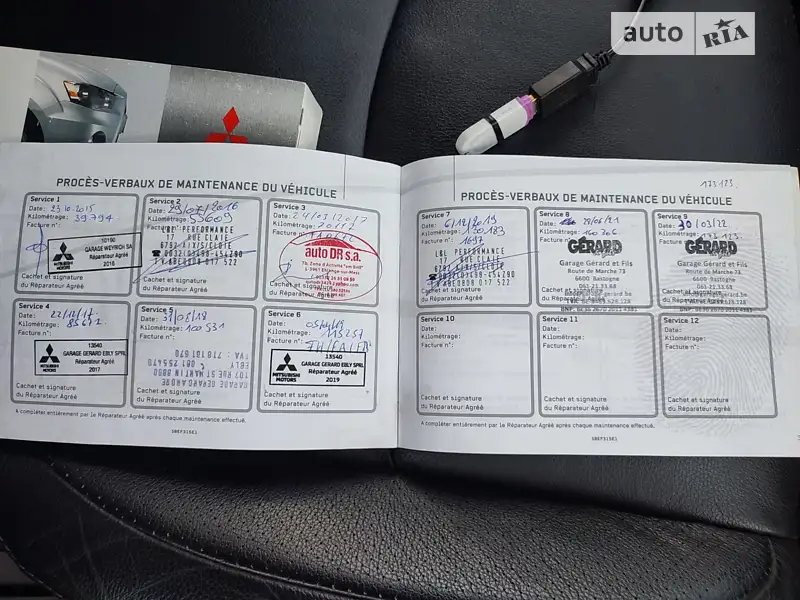 auto RIA
173123.
PROCÈS-VERBAUX DE MAINTENANCE DU VÉHICULE
Service 1
Date: 23.10.2015
Kilométrage: 39794
Facture n°:
10190
GARAGE WEYRICH SA
Réparateur Agréé
2015
MITSUBISHI
MOTORS
Cachet et signature
du Réparateur Agréé
Service 2
Date: 29/07/2016
Kilométrage: 55609
Facture
L&L PERFORMANCE
17 RUE CLAIE
6792 AIX/S/CLOIE
Cachet et signature
du Réparateur Agréé
Service 3
Date: 24/03/2017
Kilométrage:
Facture n°:
auto DR s.a.
Cachet et signature
du Réparateur Agréé
Service 4
Date: 22/12/17
Kilométrage: 85672
Facture n°:
13540
GARAGE GERARD EBLY SPRL
Réparateur Agréé
2017
MITSUBISHI
MOTORS
Cachet et signature
du Réparateur Agréé
Service 5
Date: /05/19
Kilométrage: 100531
Facture n°:
107 RUE ST MARTIN
EBLY
TVA :
Cachet et signature
du Réparateur Agréé
Service 6
Date:
Kilométrage: 115257
Facture n°:
13540
GARAGE GERARD EBLY SPRL
Réparateur Agréé
2019
MITSUBISHI
MOTORS
Cachet et signature
du Réparateur Agréé
A compléter entièrement par le Réparateur Agréé après chaque maintenance effectué.
1BEF315E1
PROCÈS-VERBAUX DE MAINTENANCE DU VÉHICULE
Service 7
Date: 6/12/2019
Kilométrage:
Facture n°: 1697
L&L PERFORMANCE
17, RUE CLAIE
Cachet et signature
du Réparateur Agréé
Service 8
Date: /06/21
Kilométrage: 160206
Facture n°:
GÉRARD
Garage Gérard et Fils
Route de Marche 73
6600 Bastogne
061-21.33.68
Cachet et signature
du Réparateur Agréé
Service 9
Date: 30/03/22
Kilométrage: 173123.
Facture n°:
GÉRARD
Garage Gérard et Fils
Route de Marche 73
6600 Bastogne
061-21.33.68
Cachet et signature
du Réparateur Agréé
Service 10
Date:
Kilométrage:
Facture n°:
Cachet et signature
du Réparateur Agréé
Service 11
Date:
Kilométrage:
Facture n°:
Cachet et signature
du Réparateur Agréé
Service 12
Date:
Kilométrage:
Facture n°:
Cachet et signature
du Réparateur Agréé
A compléter entièrement par le Réparateur Agréé après chaque maintenance effectué.
1BEF315E1